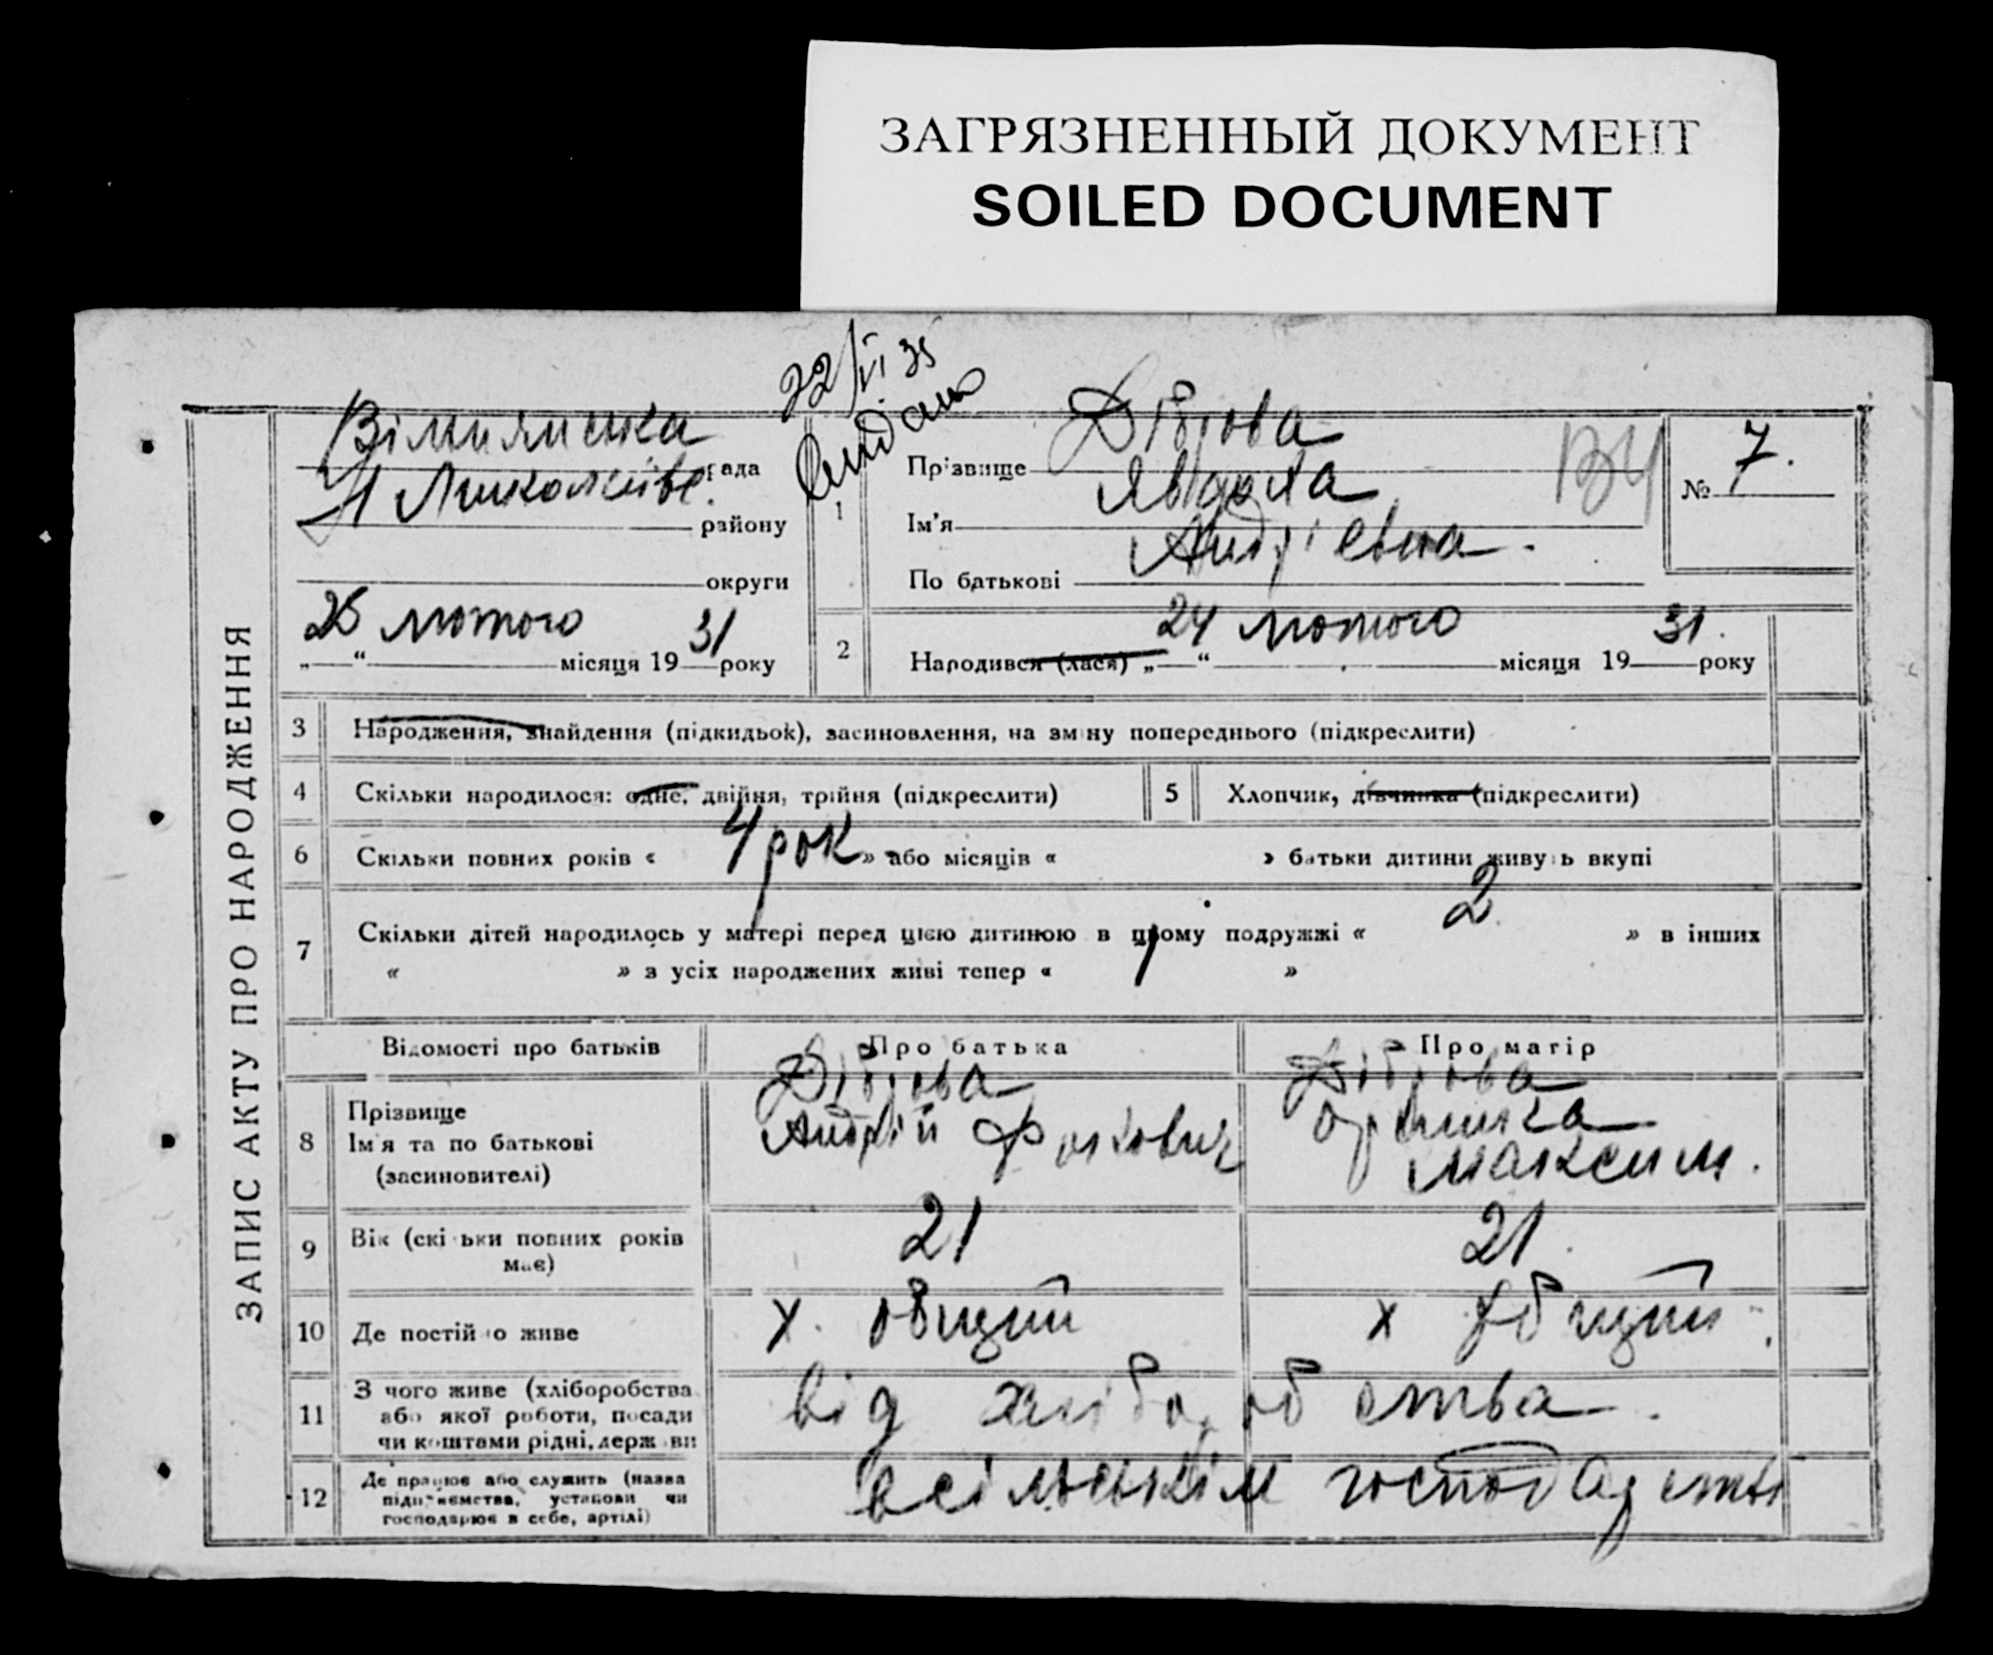 ЗАГРЯЗНЕННЫЙ ДОКУМЕНТ
SOILED DOCUMENT
22/VI 35
ЗАПИС АКТУ ПРО НАРОДЖЕННЯ
рада
району
округи
25 лютого 31
„—“ місяця 19 року
1
Прізвище Діброва
Ім'я Явдоха
По батькові Андріевна
ВЧ
№ 7.
2 Народився (лася) „24“ лютого місяця 19 31. року
3 Народження, знайдення (підкидьок), засиновлення, на зміну попереднього (підкреслити)
4 Скільки народилося: одне, двійня, трійня (підкреслити) 5 Хлопчик, дівчинка (підкреслити)
6 Скільки повних років « 4 рок » або місяців « » батьки дитини живуть вкупі
7 Скільки дітей народилось у матері перед цією дитиною в цьому подружжі « 2 » в інших
« » з усіх народжених живі тепер « 1 »
Відомості про батьків Про батька Про матір
8 Прізвище Ім'я та по батькові (засиновителі)
Діброва Андрій
Діброва Максим.
9 Вік (скільки повних років має) 21 21.
10 Де постійно живе х. х
11 З чого живе (хліборобства або якої роботи, посади чи коштами рідні, держави
від хліборобства.
12 Де працює або служить (назва підприємства, установи чи господарює в себе, артілі)
в сільським господарстві